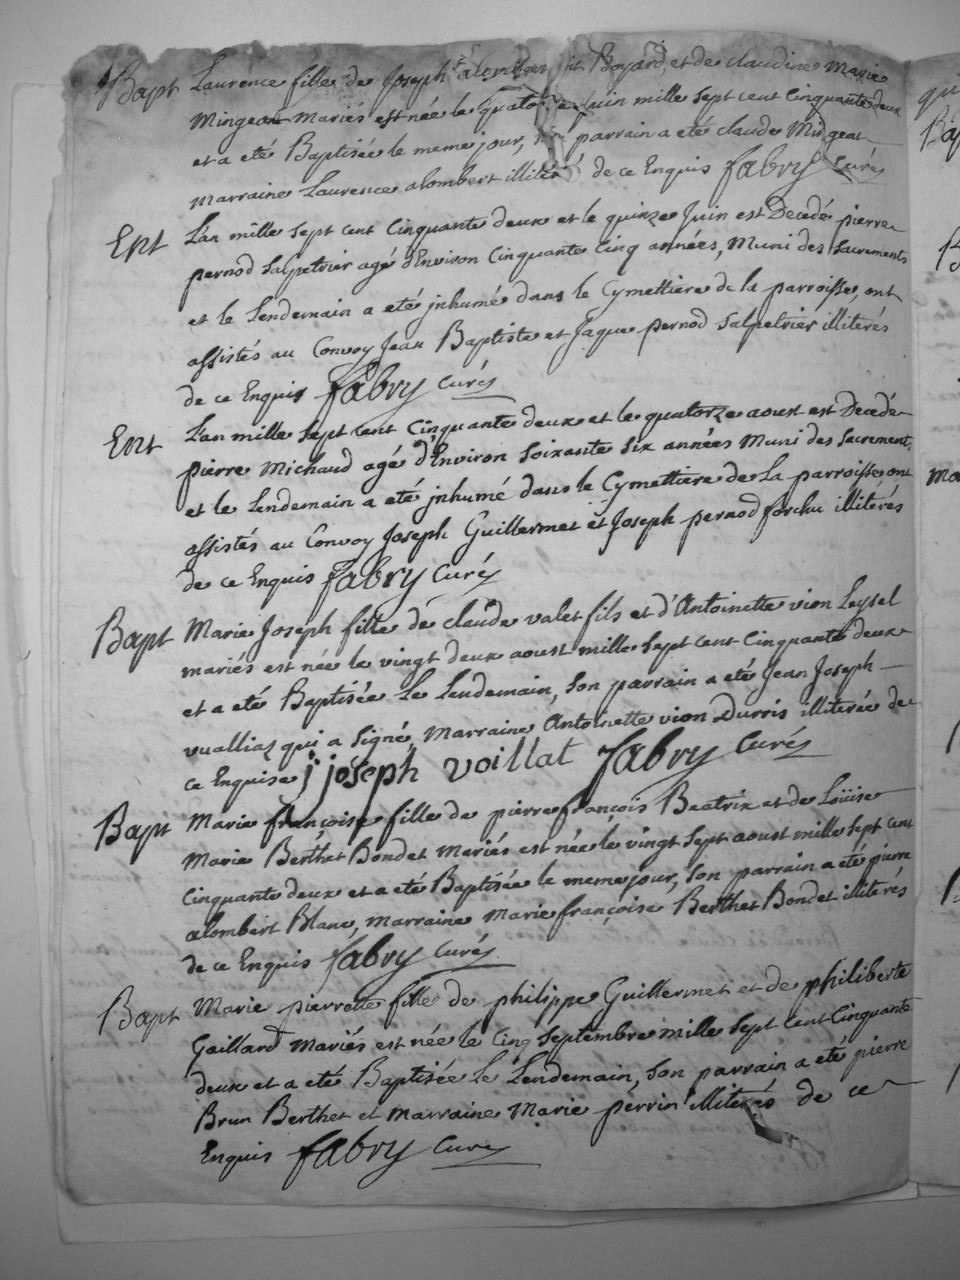 Bapt Laurence fille de Joseph alombert dit Boyard, et de claudine Marie
Mingeon Mariés est née le quatorze Juin mille sept cent Cinquante deux
et a eté Baptisée le meme jour, son parrain a eté claude Midgeat
marraine Laurence alombert illiterés de ce Enquis fabry Curés
Ent L'an mille sept cent Cinquante deux et le quinze Juin est Decedé pierre
pernod Salpetrier agé d'Environ Cinquante Cinq années, Muni des Sacrements
et le Lendemain a eté jnhumé dans le Cymettiere de la parroisse, ont
assistés au Convoy Jean Baptiste et Jaque pernod Salpetrier illiterés
de ce Enquis fabry Curés
Ent L'an mille sept cent Cinquante deux et le quatorze aoust est Decedé
pierre Michaud agé d'Environ soixante six années Muni des Sacrement
et le Lendemain a eté jnhumé dans le Cymettiere de La parroisse ont
assistés au Convoy Joseph Guillermet et Joseph pernod forchu illiterés
de ce Enquis fabry Curés
Bapt Marie Joseph fille de claude valet fils et d'Antoinette vion Leysel
mariés est née le vingt deux aoust mille sept cent Cinquante deux
et a eté Baptisée Le Lendemain, son parrain a eté Jean Joseph
vualliaz qui a signé, Marraine Antoinette vion Durris illiterée de
ce Enquise j joseph voillat fabry Curés
Bapt Marie françoise fille de pierre françois Beatrix et de Loüise
Marie Berthet Bondet Mariés est née le vingt sept aoust mille sept cent
Cinquante deux et a eté Baptisée le meme jour, son parrain a été pierre
alombert Blanc, marraine Marie françoise Berthet Bondet illiterés
de ce Enquis fabry Curés
Bapt Marie pierrette fille de philippe Guillermet et de philiberte
Gaillard Mariés est née le Cinq Septembre mille sept cent Cinquante
deux et a eté Baptisée Le Lendemain, son parrain a eté pierre
Brun Berthet et marraine Marie perrin illiterés de ce
Enquis fabry Curés